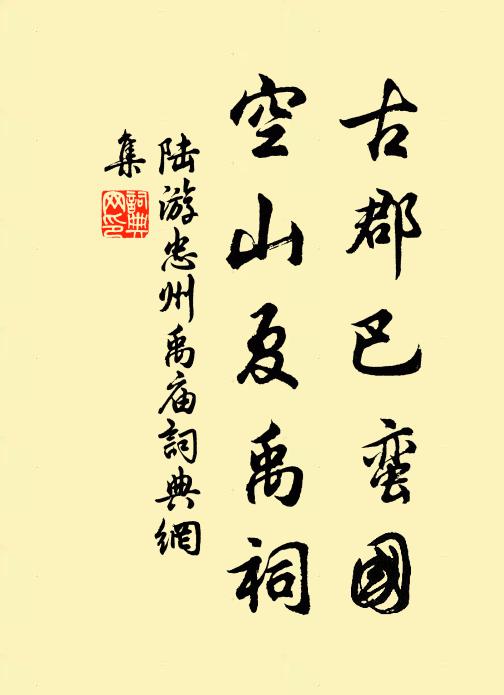 古郡巴蛮國
空山夏禹祠
陆游忠州禹庙詞典網
集
詞典
网印